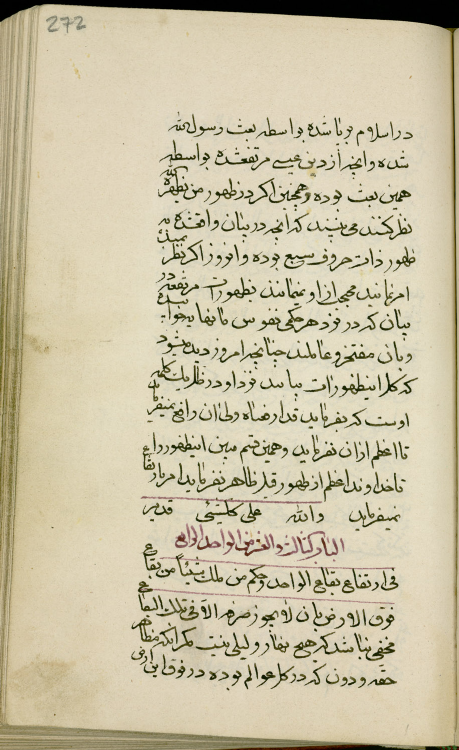 272
در اسلام برپا شده بواسطه بعث رسول الله
شده وانچه از دین عیسی مرتفع شده بواسطه
همین بعث بوده وهمچنین اکر در ظهور من یظهره الله
نظر کنند می بینند که انچه در بیان واقع شده به
ظهور ذات حروف سبع بوده وانروز اکر نظر
نمایند از او ظهورات مرتفعه در
بیان که در نزد هر حکمی نفوس
وبان مفتخر وعاملند چنانچه امروز دیده میشود
که کل این ظهورات نزد او در ظل یک کلمه
اوست که نفرماید قدر
تا اعظم از ان نفرماید وهمین قسم ببین این ظهور را
تا خداوند اعظم از ظهور قبل ظاهر نفرماید امر بارتفاع
نمیفرماید والله علی کلشیئ قدیر
الباب الثالث والعشر من الواحد الرابع
فی ارتفاع بقاع الواحد وحکم من ملک شیئا من بقاع
فوق الارض بان لا یجوز الا فی تلک البقاع
مخفی نباشد که هیچ نهار ولیلی نیست مکر انکه مظاهر
حقه ودون که در کل عوالم بوده در فوق این ارض